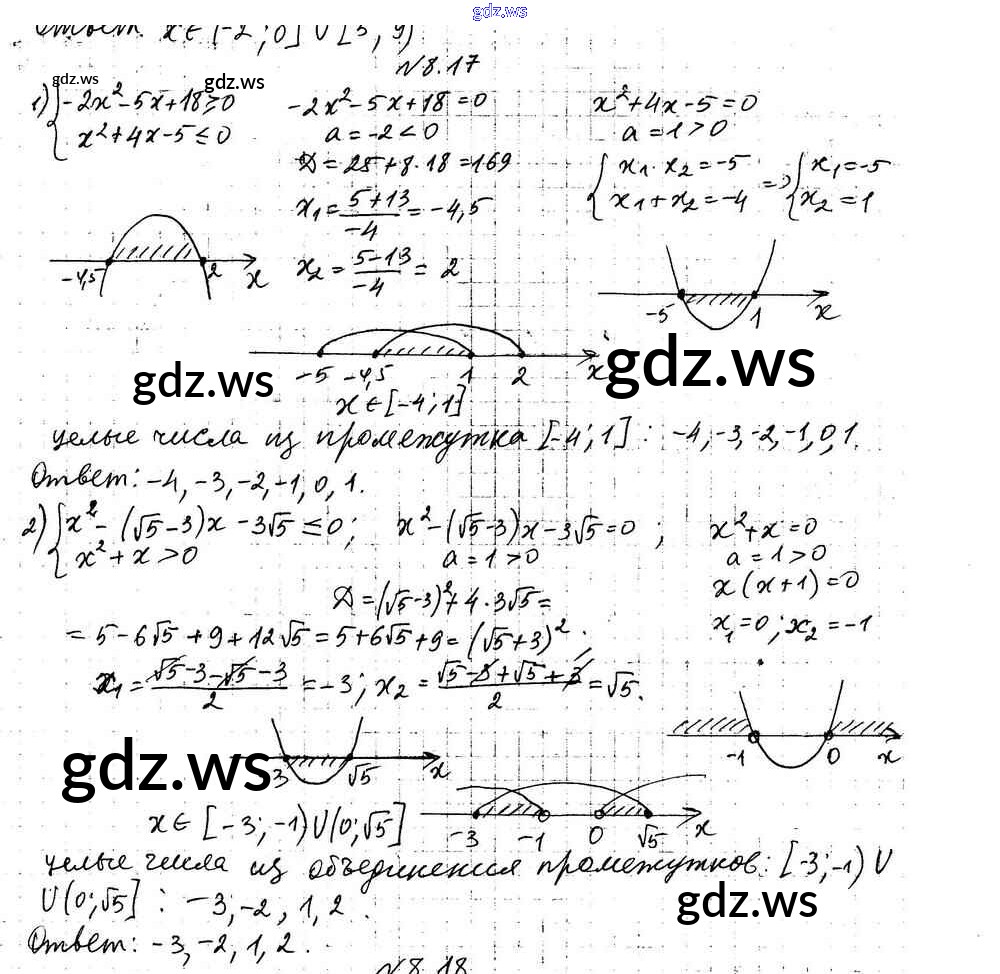 gdz.ws
Ответ: x ∈ [-2; 0] ∪ [3, 9)
N 8.17
gdz.ws gdz.ws
1) { -2x² - 5x + 18 ≥ 0
x² + 4x - 5 ≤ 0
-2x² - 5x + 18 = 0
a = -2 < 0
D = 25 + 8·18 = 169
x₁ = (5+13)/(-4) = -4,5
x₂ = (5-13)/(-4) = 2
x² + 4x - 5 = 0
a = 1 > 0
{ x₁ · x₂ = -5
x₁ + x₂ = -4
=> { x₁ = -5
x₂ = 1
-4,5 2 x
-5 1 x
-5 -4,5 1 2 x
gdz.ws gdz.ws
x ∈ [-4; 1]
целые числа из промежутка [-4; 1] : -4, -3, -2, -1, 0, 1.
Ответ: -4, -3, -2, -1, 0, 1.
2) { x² - (√5 - 3)x - 3√5 ≤ 0;
x² + x > 0
x² - (√5-3)x - 3√5 = 0 ;
a = 1 > 0
D = (√5-3)² + 4·3√5 =
= 5 - 6√5 + 9 + 12√5 = 5 + 6√5 + 9 = (√5+3)² ;
x₁ = (√5 - 3 - √5 - 3)/2 = -3; x₂ = (√5 - 3 + √5 + 3)/2 = √5.
x² + x = 0
a = 1 > 0
x(x+1) = 0
x₁ = 0; x₂ = -1
gdz.ws
3 √5 x
-1 0 x
-3 -1 0 √5 x
x ∈ [-3; -1) ∪ (0; √5]
целые числа из объединения промежутков: [-3; -1) ∪
∪ (0; √5] : -3, -2, 1, 2.
gdz.ws
Ответ: -3, -2, 1, 2.
N 8.18